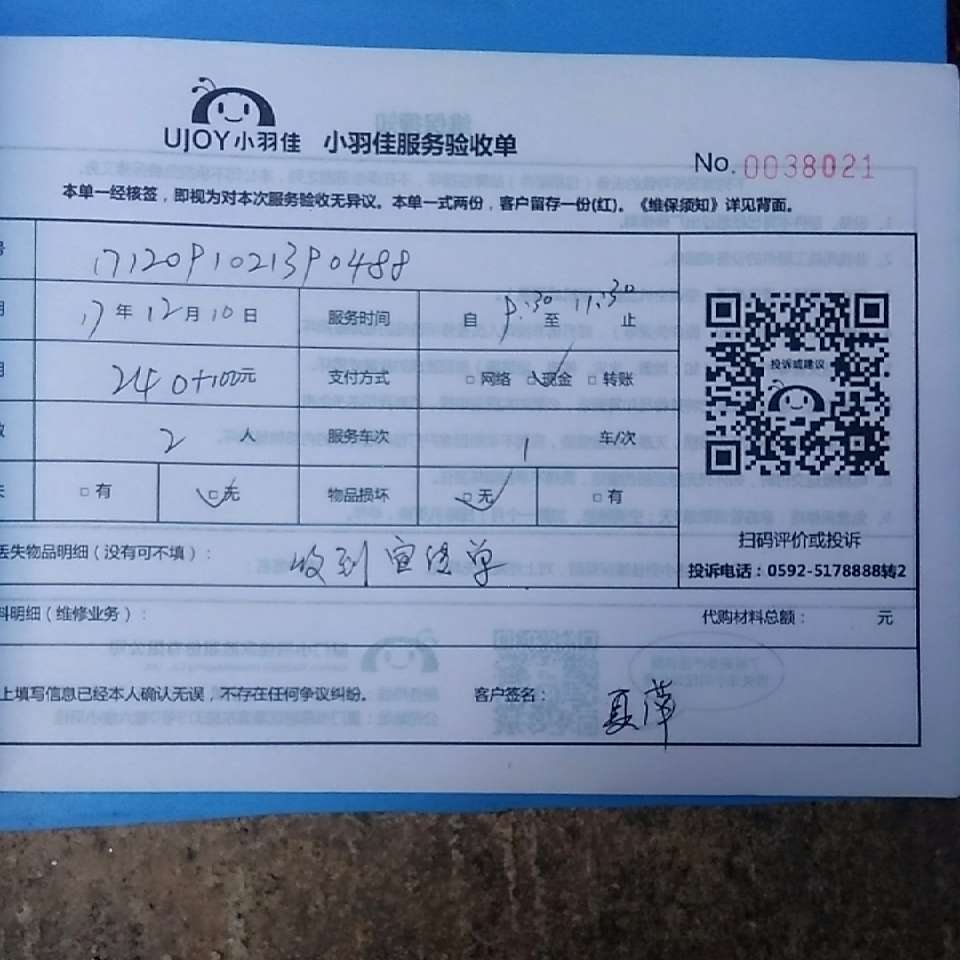 UJOY小羽佳 小羽佳服务验收单
No. 0038021
本单一经核签，即视为对本次服务验收无异议。本单一式两份，客户留存一份(红)。《维保须知》详见背面。
号 1712091021390488
17年12月10日 服务时间 自 9:30 至 11:30 止
240+100元 支付方式 □网络 □现金 □转账
2 人 服务车次 1 车/次
□有 □无 物品损坏 □无 □有
丢失物品明细（没有可不填）： 收到宣传单
投诉或建议
扫码评价或投诉
投诉电话：0592-5178888转2
料明细（维修业务）： 代购材料总额： 元
上填写信息已经本人确认无误，不存在任何争议纠纷。 客户签名： 夏萍